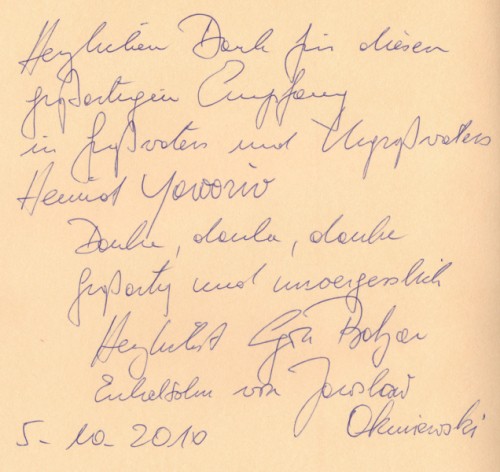 Herzlichen Dank für diesen
großartigen Empfang
in Großvaters und Urgroßvaters
Heimat Yavoriv
Danke, danke, danke
Großartig und unvergesslich
Herzlichst
Enkelsohn von Jaroslaw
5-10-2010